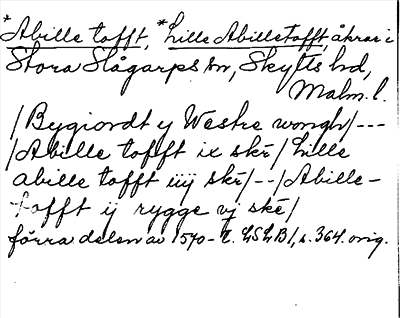 *Abille tofft, *Lille Abilletofft, åkrar i
Stora Slågarps sn, Skytts hd,
Malm. l.
/Bygiordt y Westre wongh/---
/Abille tofft ix skē/ Lille
abille tofft iiij skē/--/Abille-
tofft ij rygge vj skē/
förra delen av 1570-t. LSLB1, s. 364. orig.